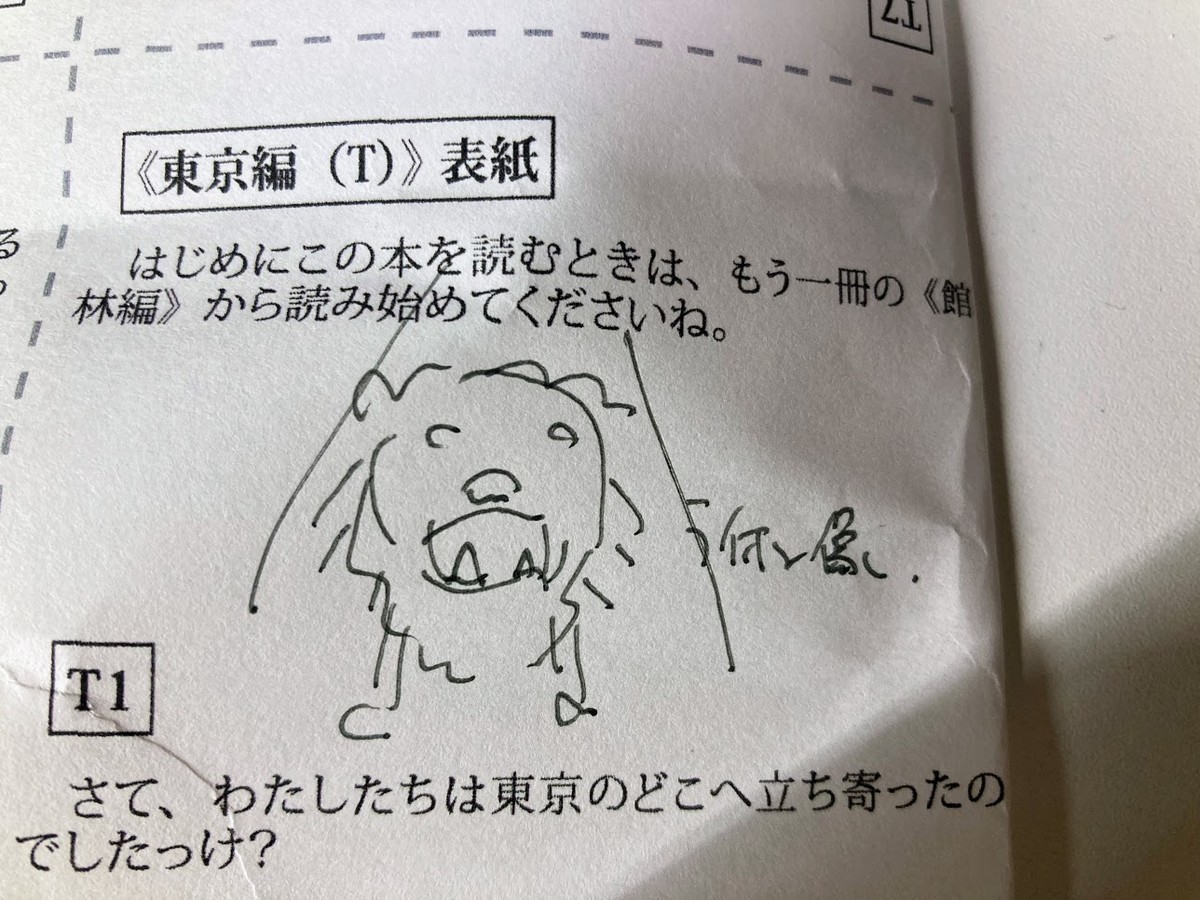 《東京編（T）》表紙
はじめにこの本を読むときは、もう一冊の《館
林編》から読み始めてくださいね。
T1
さて、わたしたちは東京のどこへ立ち寄ったの
でしたっけ？